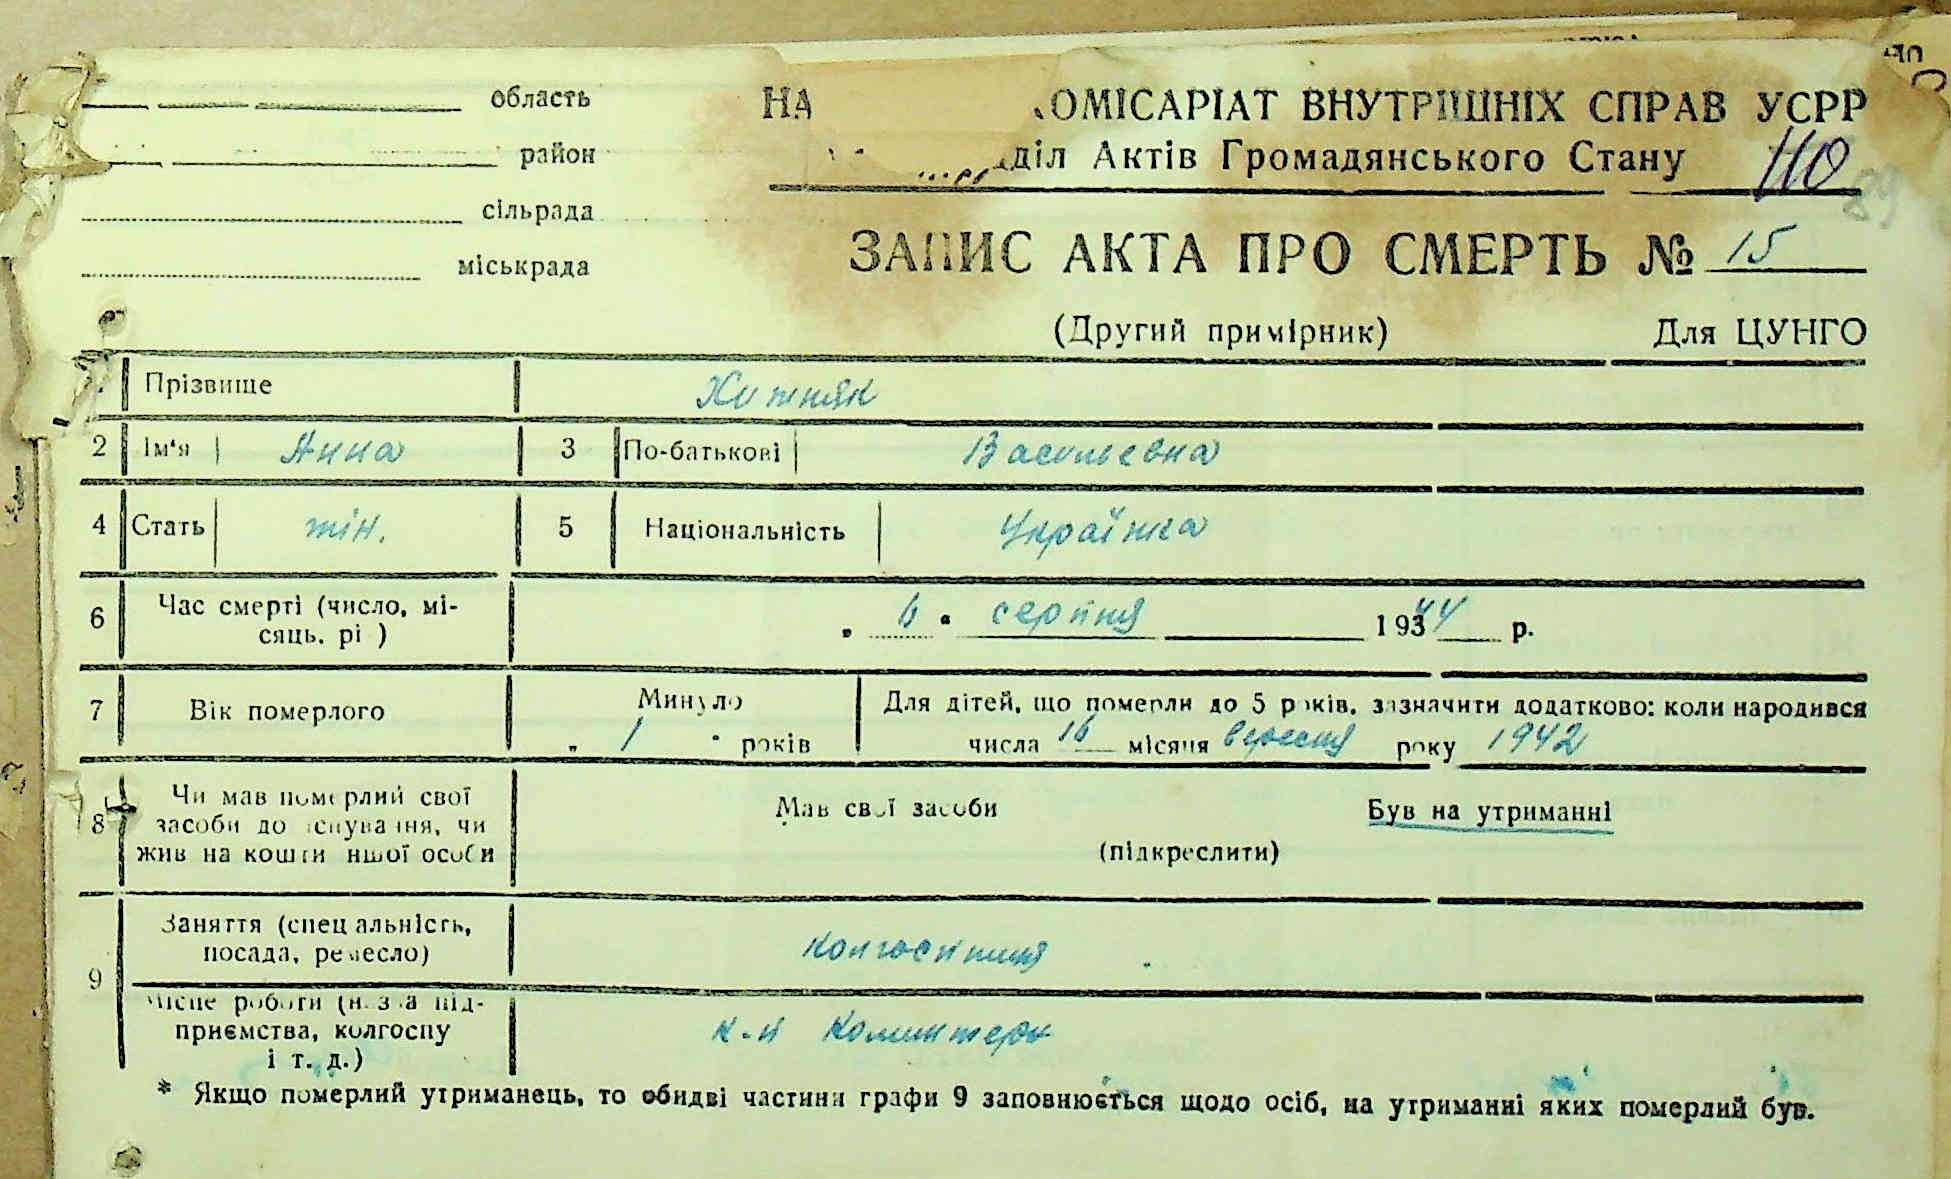 область
НА ОМІСАРІАТ ВНУТРІШНІХ СПРАВ УСРР
район
діл Актів Громадянського Стану 110
89
сільрада
міськрада
ЗАПИС АКТА ПРО СМЕРТЬ № 15
(Другий примірник) Для ЦУНГО
Прізвище Житняк
2 Ім'я Анна 3 По-батькові Васильевна
4 Стать жін. 5 Національність Українка
6 Час смерті (число, мі-
сяць, рі )
" 6 " серпня 1944 р.
7 Вік померлого Минуло
" 1 " років
Для дітей, що померли до 5 років, зазначити додатково: коли народився
числа 16 місяця вересня року 1942
8 Чи мав померлий свої
засоби до існування, чи
жив на кошти іншої особи
Мав свої засоби Був на утриманні
(підкреслити)
9 Заняття (спеціальність,
посада, ремесло)
колгоспниця
Місце роботи (назва під-
приємства, колгоспу
і т. д.)
к-п Коминтерн
* Якщо померлий утриманець, то обидві частини графи 9 заповнюється щодо осіб, на утриманні яких померлий був.